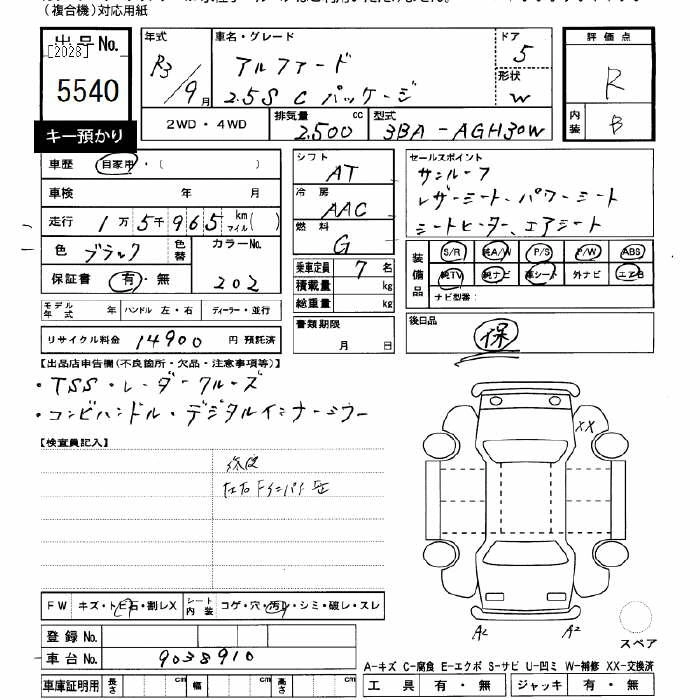 (複合機)対応用紙
出品No. [2028] 5540
キー預かり
年式 R3/9月
車名・グレード アルファード 2.5S Cパッケージ
ドア 5
形状 W
評価点 R
内装 B
2WD・4WD 排気量 2,500cc 型式 3BA-AGH30W
車歴 自家用・( )
車検 年 月
走行 1万5千965km マイル( )
色 ブラック 色替 カラーNo. 202
保証書 有・無
モデル年式 年 ハンドル 左・右 ディーラー・並行
リサイクル料金 14900 円 預託済
シフト AT
冷房 AAC
燃料 G
乗車定員 7名
積載量 kg
総重量 kg
書類期限 月 日
セールスポイント
サンルーフ
レザーシート・パワーシート
シートヒーター、エアシート
装備品 S/R 純A/W P/S P/W ABS
純TV 純ナビ 革シート 外ナビ エアB
ナビ型番:
後日品 保
【出品店申告欄(不良箇所・欠品・注意事項等)】
・TSS・レーダークルーズ
・コンビハンドル・デジタルインナーミラー
【検査員記入】
修復
XX
FW キズ・トビ石・割レX シート内装 コゲ・穴・汚レ・シミ・破レ・スレ
A2 A2
スペア
登録No.
車台No. 9038910
A-キズ C-腐食 E-エクボ S-サビ U-凹ミ W-補修 XX-交換済
車庫証明用 長さ cm 幅 cm 高さ cm
工具 有・無 ジャッキ 有・無